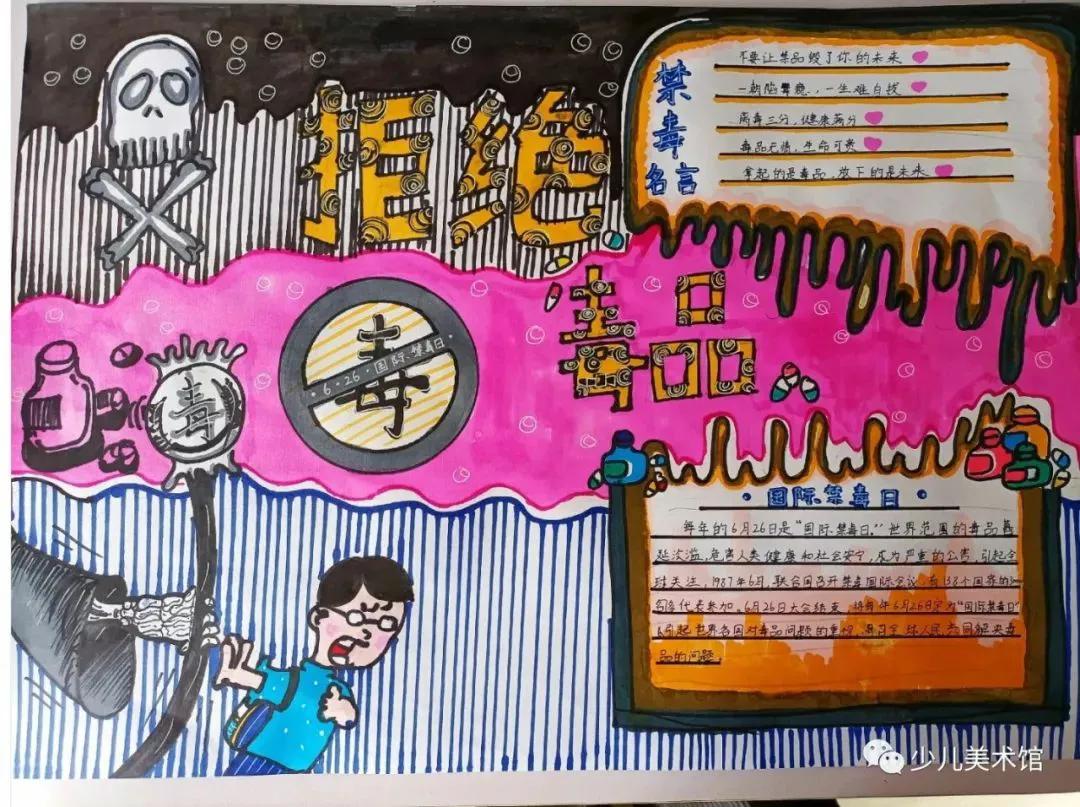 拒绝
毒品
禁毒
名言
不要让禁品毁了你的未来
一朝陷毒瘾，一生难自拔
离毒三分，健康满分
毒品无情，生命可贵
拿起的是毒品，放下的是未来
毒
6·26·国际禁毒日
毒
·国际禁毒日·
每年的6月26日是“国际禁毒日。”世界范围的毒品蔓
延泛滥，危害人类健康和社会安宁，成为严重的公害，引起全
球关注，1987年6月，联合国召开禁毒国际会议，有138个国家的
名代表参加。6月26日大会结束，将每年6月26日定为“国际禁毒日”
引起世界各国对毒品问题的重视，号召全球人民共同解决毒
品的问题。
少儿美术馆